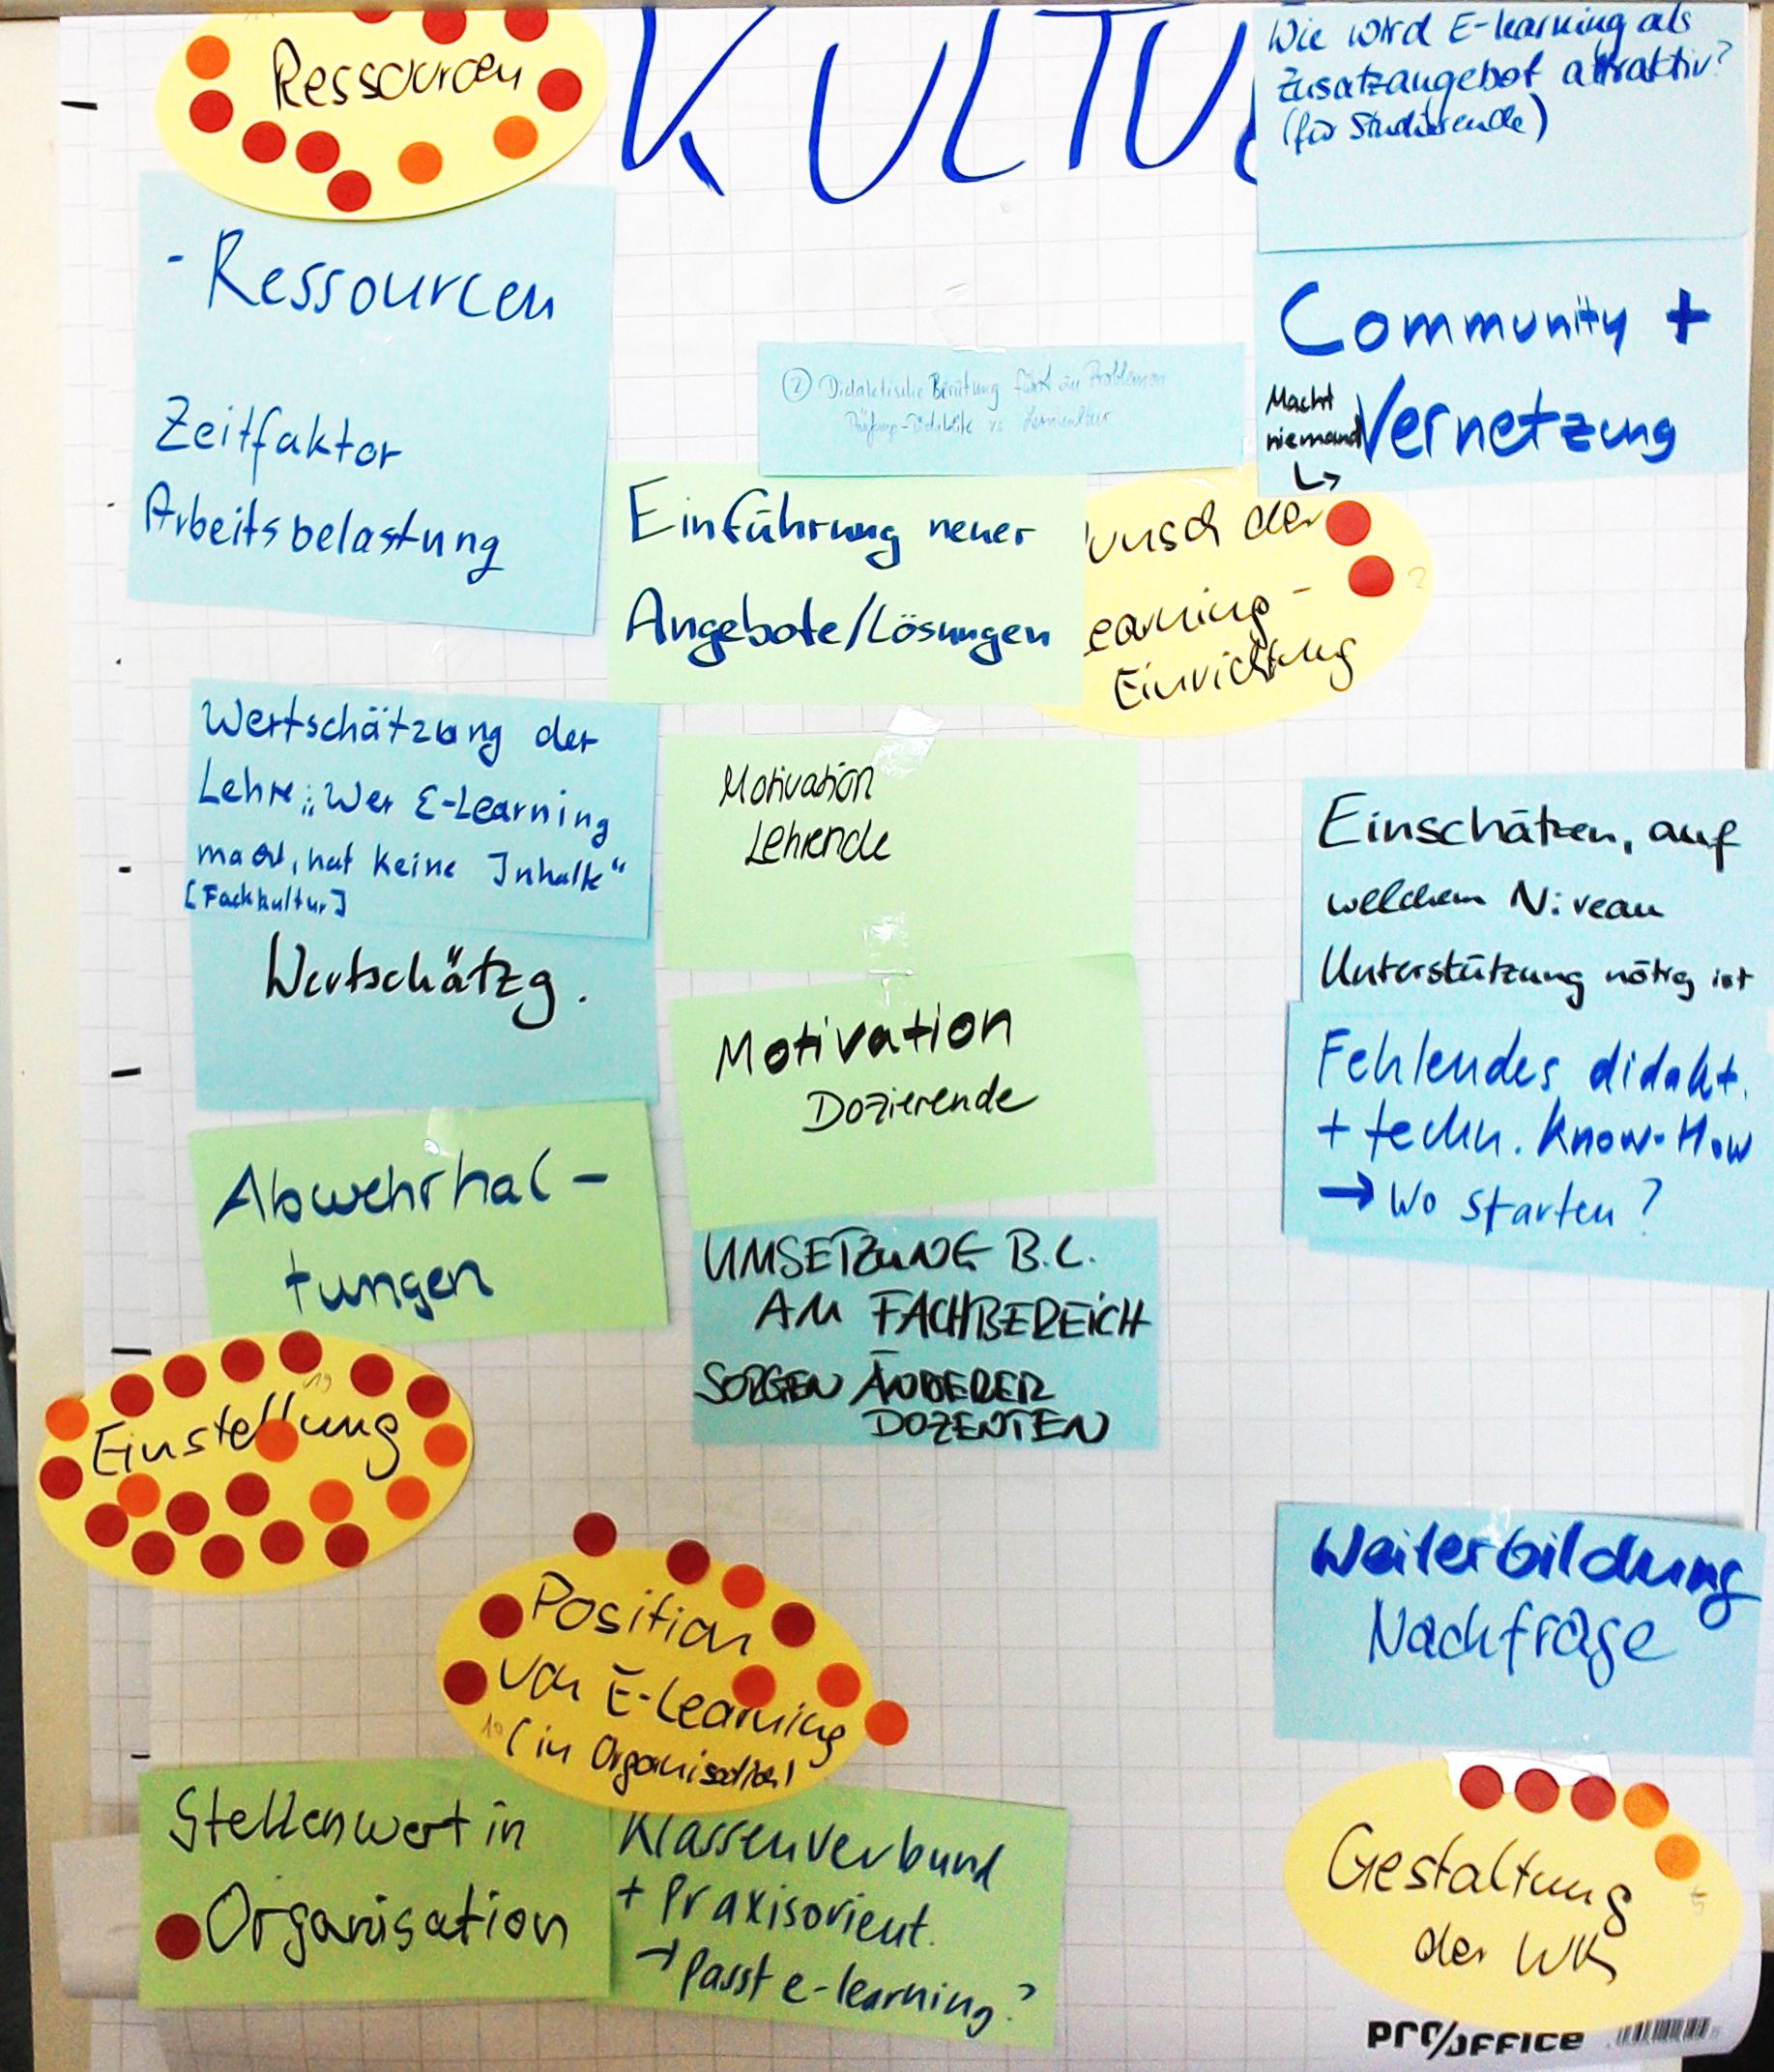 Ressourcen
KULTU
Wie wird E-learning als
Zusatzangebot attraktiv?
(für Studierende)
- Ressourcen
Zeitfaktor
Arbeitsbelastung
Community +
Macht
niemand
Vernetzung
② Didaktische Beratung führt zu Problemen
Prüfungs-Didaktik vs. Lernkultur
Einführung neuer
Angebote/Lösungen
unsch der
earning-
Einrichtung
2
Wertschätzung der
Lehre: „Wer E-Learning
macht, hat keine Inhalte“
[Fachkultur]
Wertschätzg.
Motivation
Lehrende
Motivation
Dozierende
Einschätzen, auf
welchem Niveau
Unterstützung nötig ist
Fehlendes didakt.
+ techn. Know-How
→ Wo starten?
Abwehrhal-
tungen
UMSETZUNG B.L.
AM FACHBEREICH
SORGEN ANDERER
DOZENTEN
19
Einstellung
Position
von E-Learning
10 (in Organisation)
Weiterbildung
Nachfrage
Stellenwert in
Organisation
Klassenverbund
+ Praxisorient.
→ passt e-learning?
Gestaltung
5
der WK
PRO/OFFICE